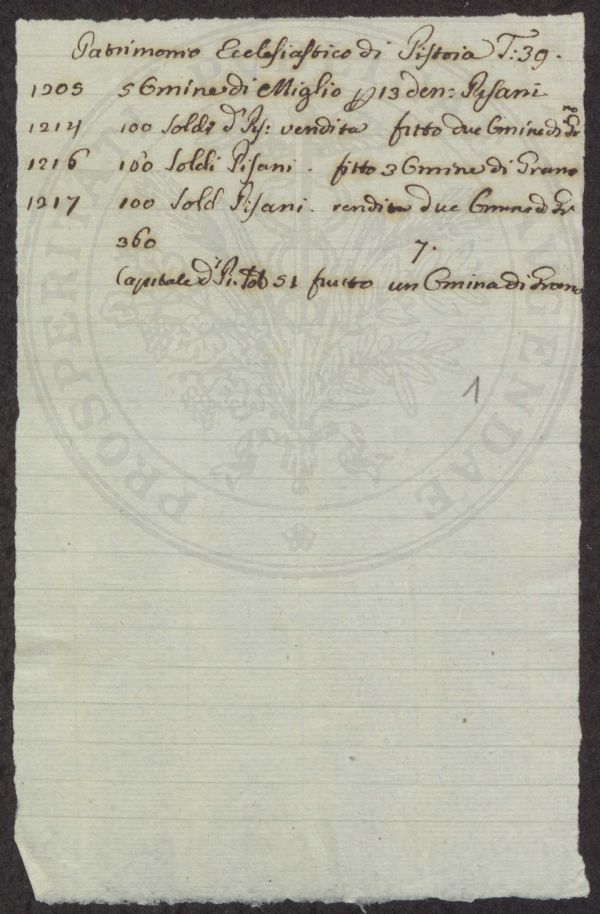 Patrimonio Ecclesiastico di Pistoia T: 39.
1205 5 Emine di Miglio p 13 den: Pisani
1214 100 Soldi d Pis: vendita fitto due Emine di Gr.no
1216 100 Soldi Pisani. fitto 3 Emine di Grano
1217 100 Sold Pisani. rendita due Emine d Gr
360 7.
Capitale d Pi. 51 frutto un Emina di Grano
1
PROSPERITATI AUGENDAE